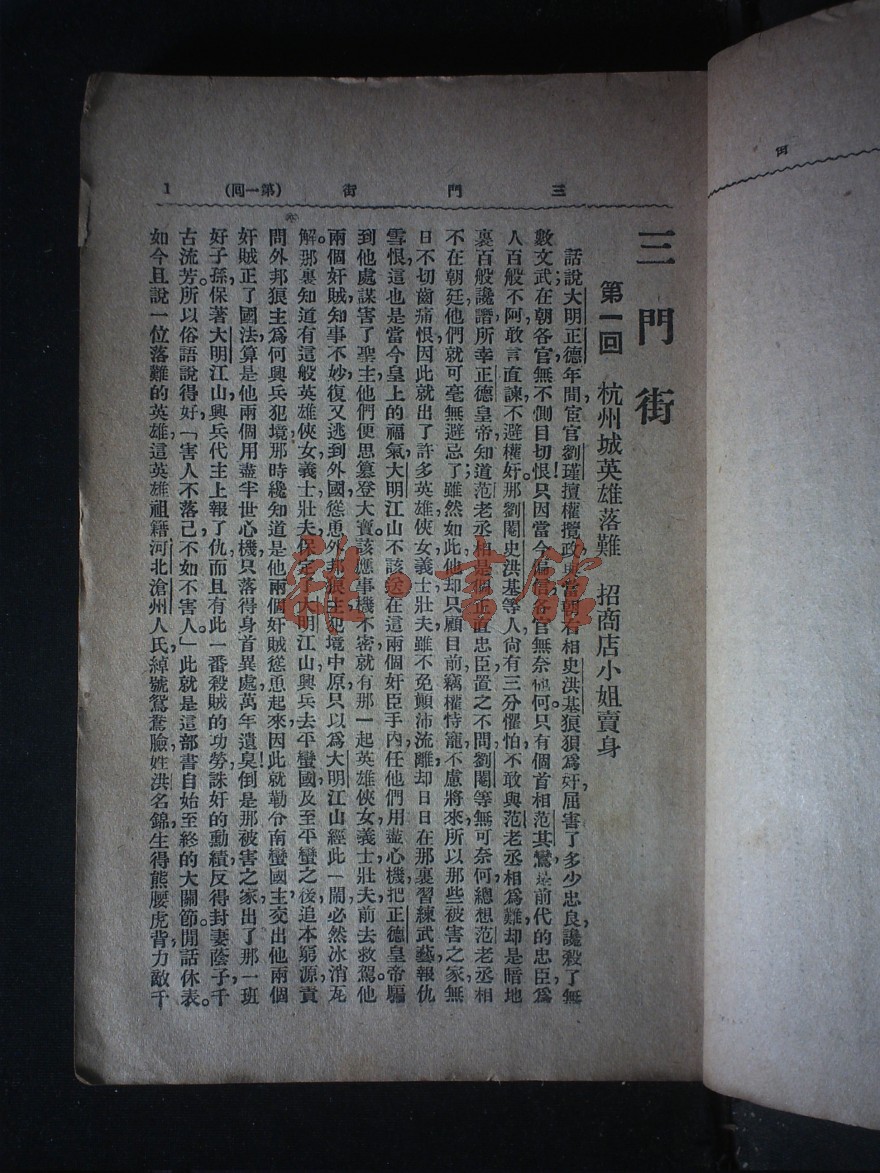 三門街 (第一回) 1
三門街
第一回 杭州城英雄落難 招商店小姐賣身
話說大明正德年間宦官劉瑾擅權攬政與當朝右相史洪基狼狽爲奸屈害了多少忠良讒殺了無
數文武在朝各官無不側目切恨只因當今偏信各官無奈他何只有個首相范其鸞是前代的忠臣爲
人百般不阿敢言直諫不避權奸。那劉閹史洪基等人尙有三分懼怕不敢與范老丞相爲難却是暗地
裏百般讒譖所幸正德皇帝知道范老丞相是個正直忠臣置之不問劉閹等無可奈何總想范老丞相
不在朝廷他們就可毫無避忌了雖然如此他却只顧目前竊權恃寵不慮將來所以那些被害之家無
日不切齒痛恨因此就出了許多英雄俠女義士壯夫雖不免顛沛流離却日日在那裏習練武藝報仇
雪恨這也是當今皇上的福氣大明江山不該送在這兩個奸臣手內任他們用盡心機把正德皇帝騙
到他處謀害了聖主他們便思篡登大寶。該應事機不密就有那一起英雄俠女義士壯夫前去救駕。他
兩個奸賊知事不妙復又逃到外國慫恿外邦狼主犯境中原只以爲大明江山經此一鬧必然冰消瓦
解。那裏知道有這般英雄俠女義士壯夫保定大明江山興兵去平蠻國及至平蠻之後追本窮源責
問外邦狼主爲何興兵犯境那時纔知道是他兩個奸賊慫恿起來因此就勒令南蠻國主交出他兩個
奸賊正了國法算是他兩個用盡半世心機只落得身首異處萬年遺臭!倒是那被害之家出了那一班
好子孫保著大明江山興兵代主上報了仇而且有此一番殺賊的功勞誅奸的勳績反得封妻蔭子千
古流芳。所以俗語說得好「害人不落己不如不害人」。此就是這部書自始至終的大關節閒話休表。
如今且說一位落難的英雄這英雄祖籍河北滄州人氏綽號鴛鴦臉姓洪名錦生得熊腰虎背力敵千
雜·書館